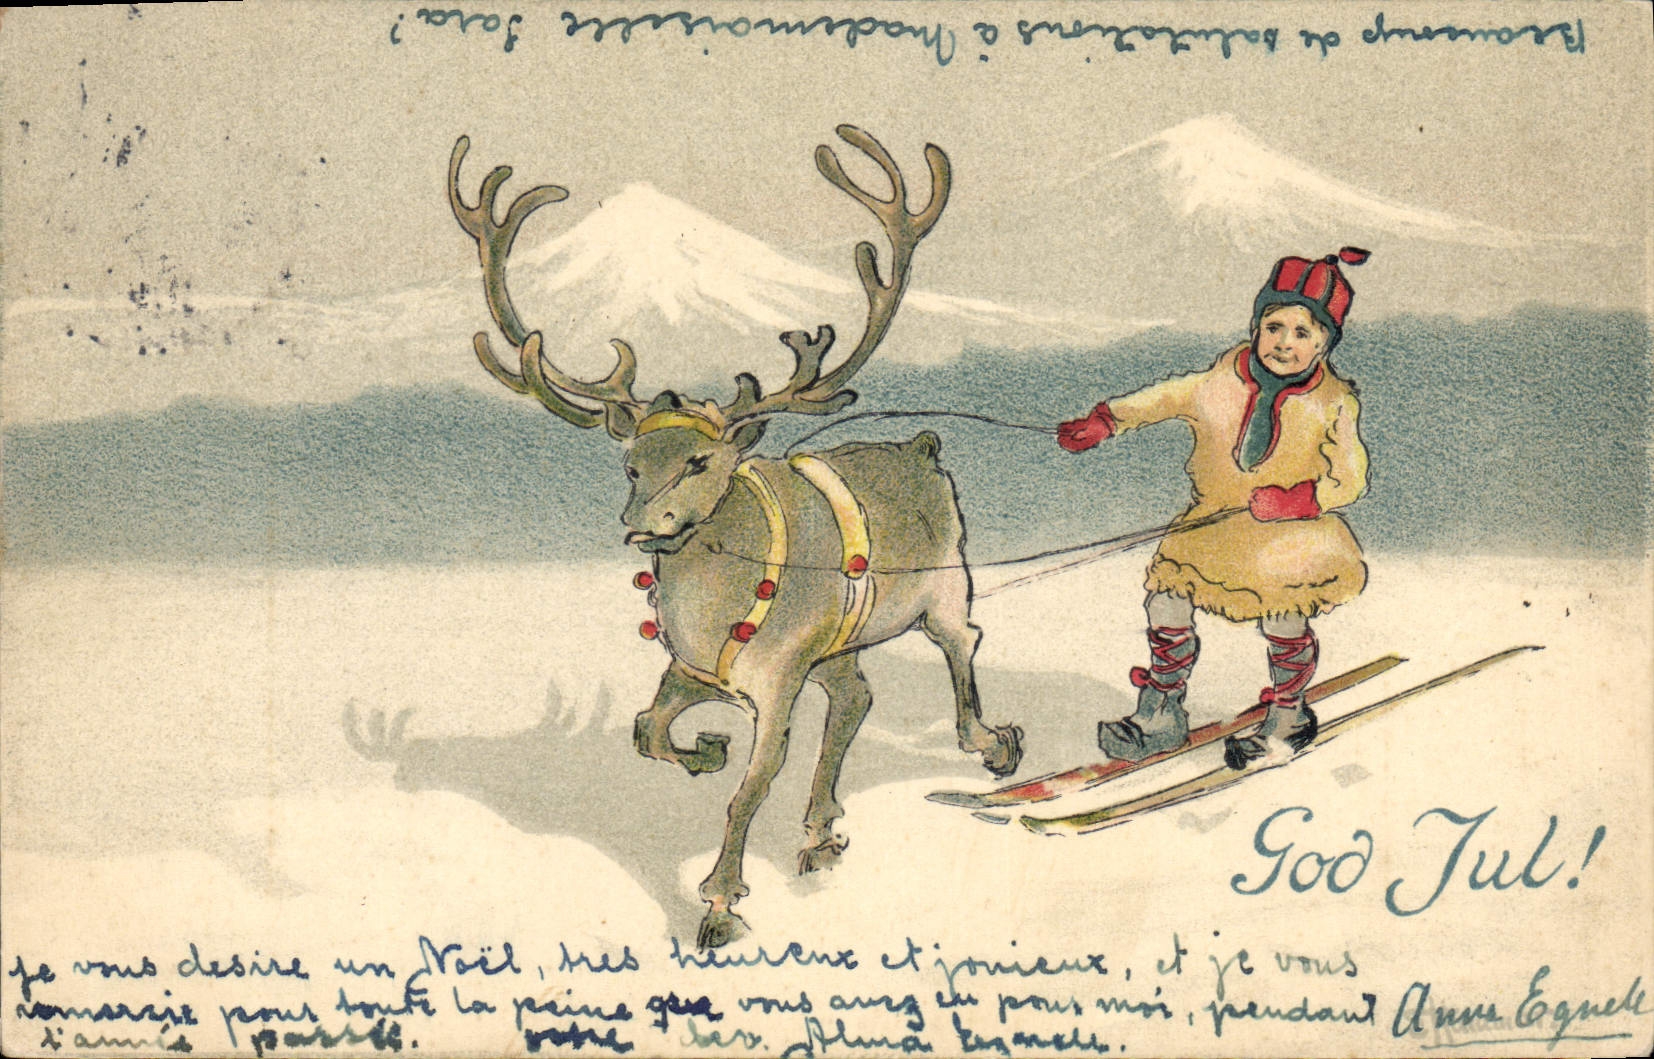 Beaucoup de salutations à Mademoiselle Sara!
God Jul!
Je vous desire un Noël, tres heureux et jouieux, et je vous
remercie pour toute la peine que vous avez eu pour moi, pendant
l'année passée. votre Alma
Anna Egnell